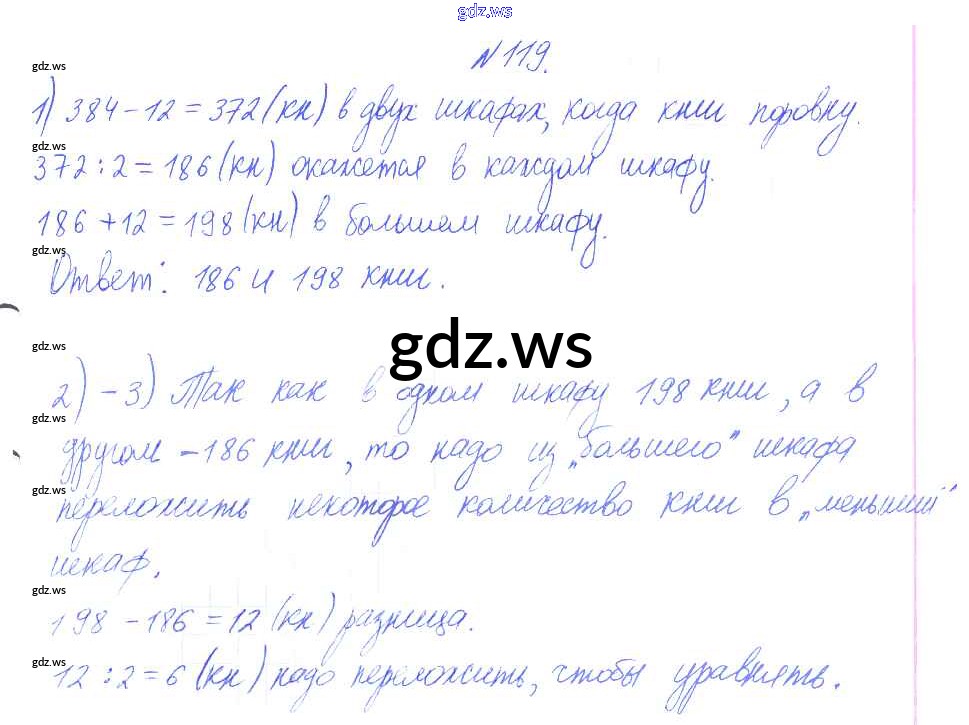 gdz.ws
№119.
gdz.ws
1) 384-12=372(кн) в двух шкафах, когда книг поровну.
gdz.ws
372:2=186(кн) окажется в каждом шкафу.
186+12=198(кн) в большем шкафу.
gdz.ws
Ответ: 186 и 198 книг.
gdz.ws
gdz.ws
2)-3) Так как в одном шкафу 198 книг, а в
gdz.ws
другом -186 книг, то надо из "большего" шкафа
gdz.ws
переложить некоторое количество книг в "меньший"
шкаф.
gdz.ws
198-186=12(кн) разница.
gdz.ws
12:2=6(кн) надо переложить, чтобы уравнять.